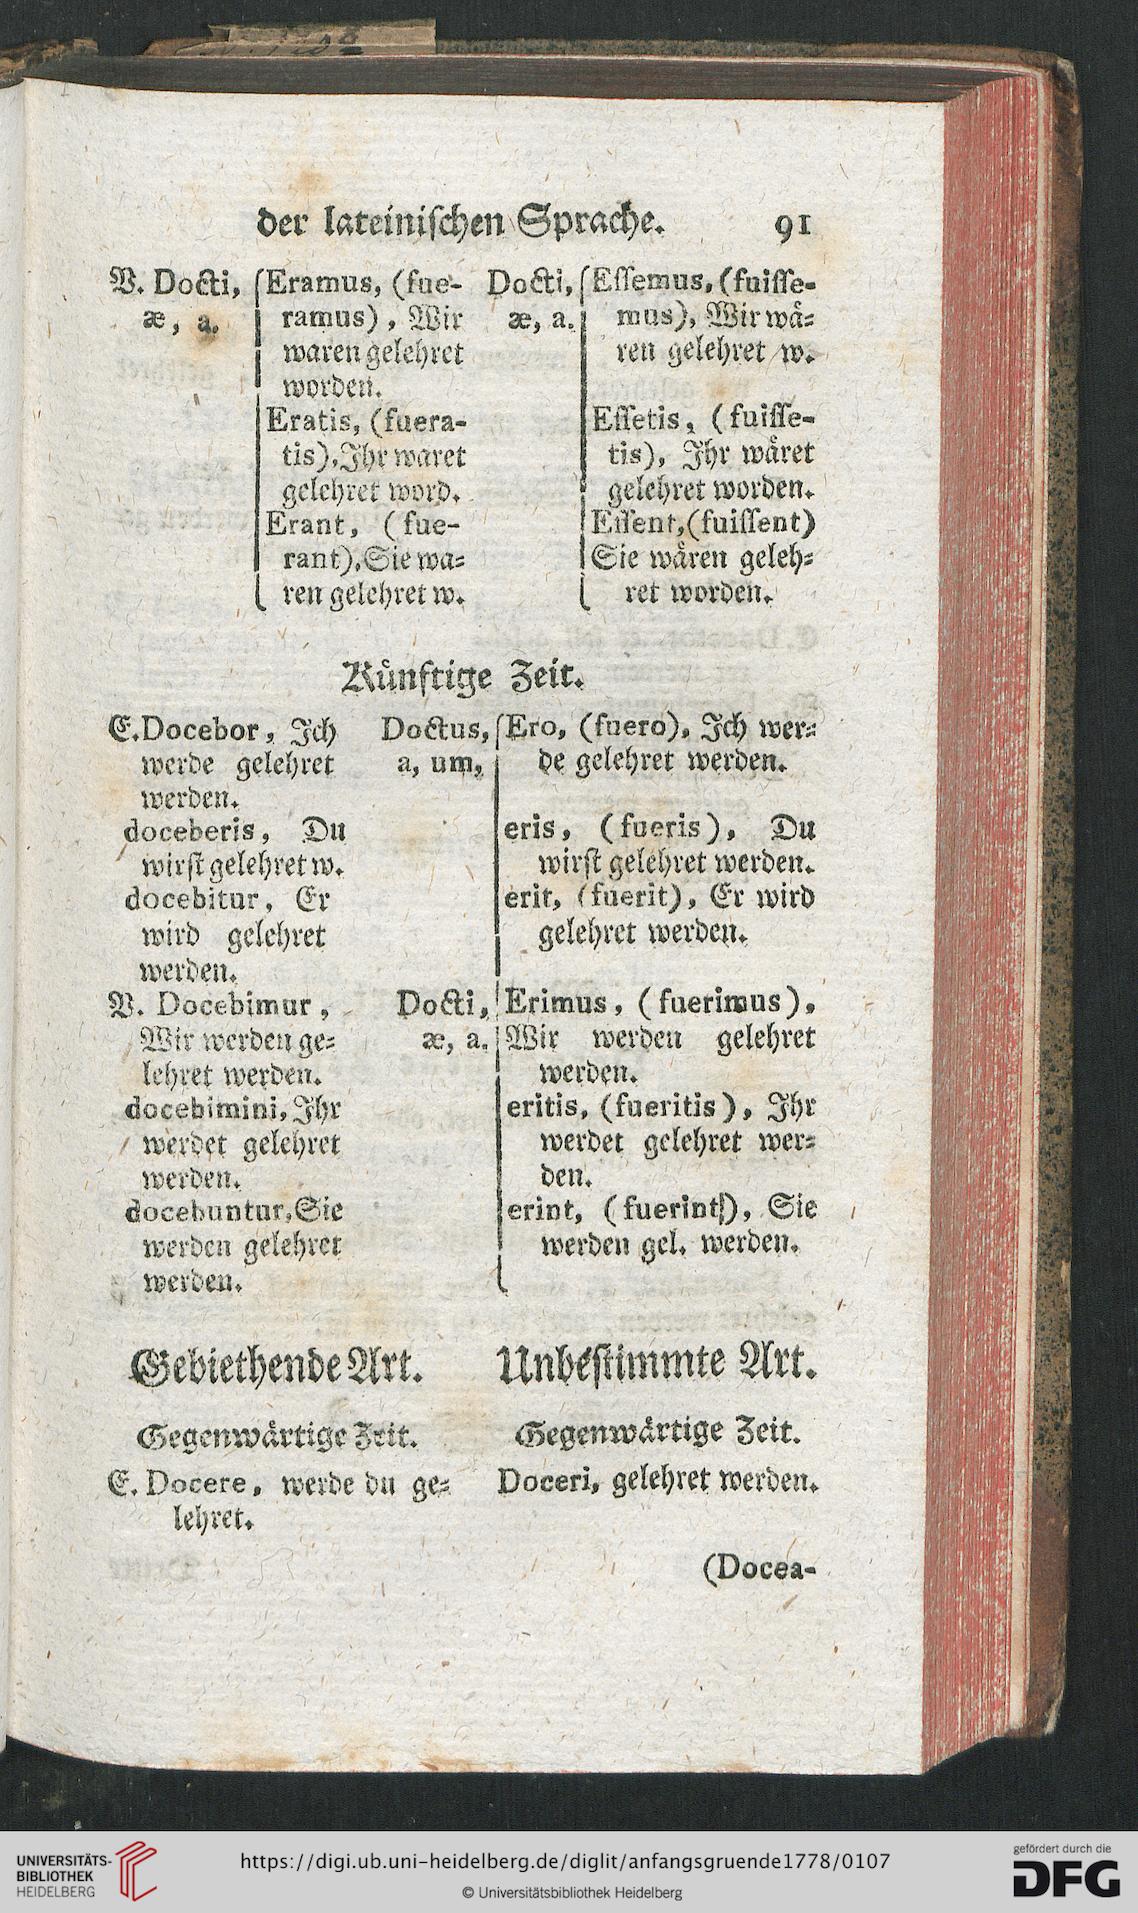 der lateinischen Sprache. 91
V. Docti, Eramus, (fue-
æ, a. ramus), Wir
waren gelehret
worden.
Eratis, (fuera-
tis), Ihr waret
gelehret word.
Erant, (fue-
rant), Sie wa-
ren gelehret w.
Docti, Essemus, (fuisse-
æ, a. mus), Wir wå-
ren gelehret w.
Essetis, (fuisse-
tis), Ihr wåret
gelehret worden.
Essent, (fuissent)
Sie wåren geleh-
ret worden.
Kůnftige Zeit.
E. Docebor, Ich
werde gelehret
werden.
doceberis, Du
wirst gelehret w.
docebitur, Er
wird gelehret
werden.
V. Docebimur,
Wir werden ge-
lehret werden.
docebimini, Ihr
werdet gelehret
werden.
docebuntur, Sie
werden gelehret
werden.
Doctus, Ero, (fuero), Ich wer-
a, um, de gelehret werden.
eris, (fueris), Du
wirst gelehret werden.
erit, (fuerit), Er wird
gelehret werden.
Docti, Erimus, (fuerimus),
æ, a. Wir werden gelehret
werden.
eritis, (fueritis), Ihr
werdet gelehret wer-
den.
erint, (fuerint), Sie
werden gel. werden.
Gebiethende Art.
Gegenwårtige Zeit.
E. Docere, werde du ge-
lehret.
Unbestimmte Art.
Gegenwårtige Zeit.
Doceri, gelehret werden.
(Docea-
UNIVERSITÄTS-
BIBLIOTHEK
HEIDELBERG
https://digi.ub.uni-heidelberg.de/diglit/anfangsgruende1778/0107
© Universitätsbibliothek Heidelberg
gefördert durch die
DFG